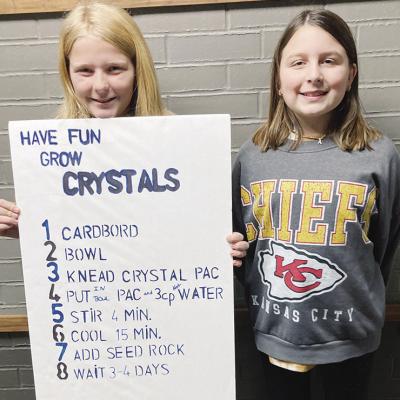 HAVE FUN
GROW
CRYSTALS
1 CARDBORD
2 BOWL
3 KNEAD CRYSTAL PAC
4 PUT IN PAC and 3cp WATER
5 STIR 4 MIN.
6 COOL 15 MIN.
7 ADD SEED ROCK
8 WAIT 3-4 DAYS
CHIEFS
KC
KANSAS CITY